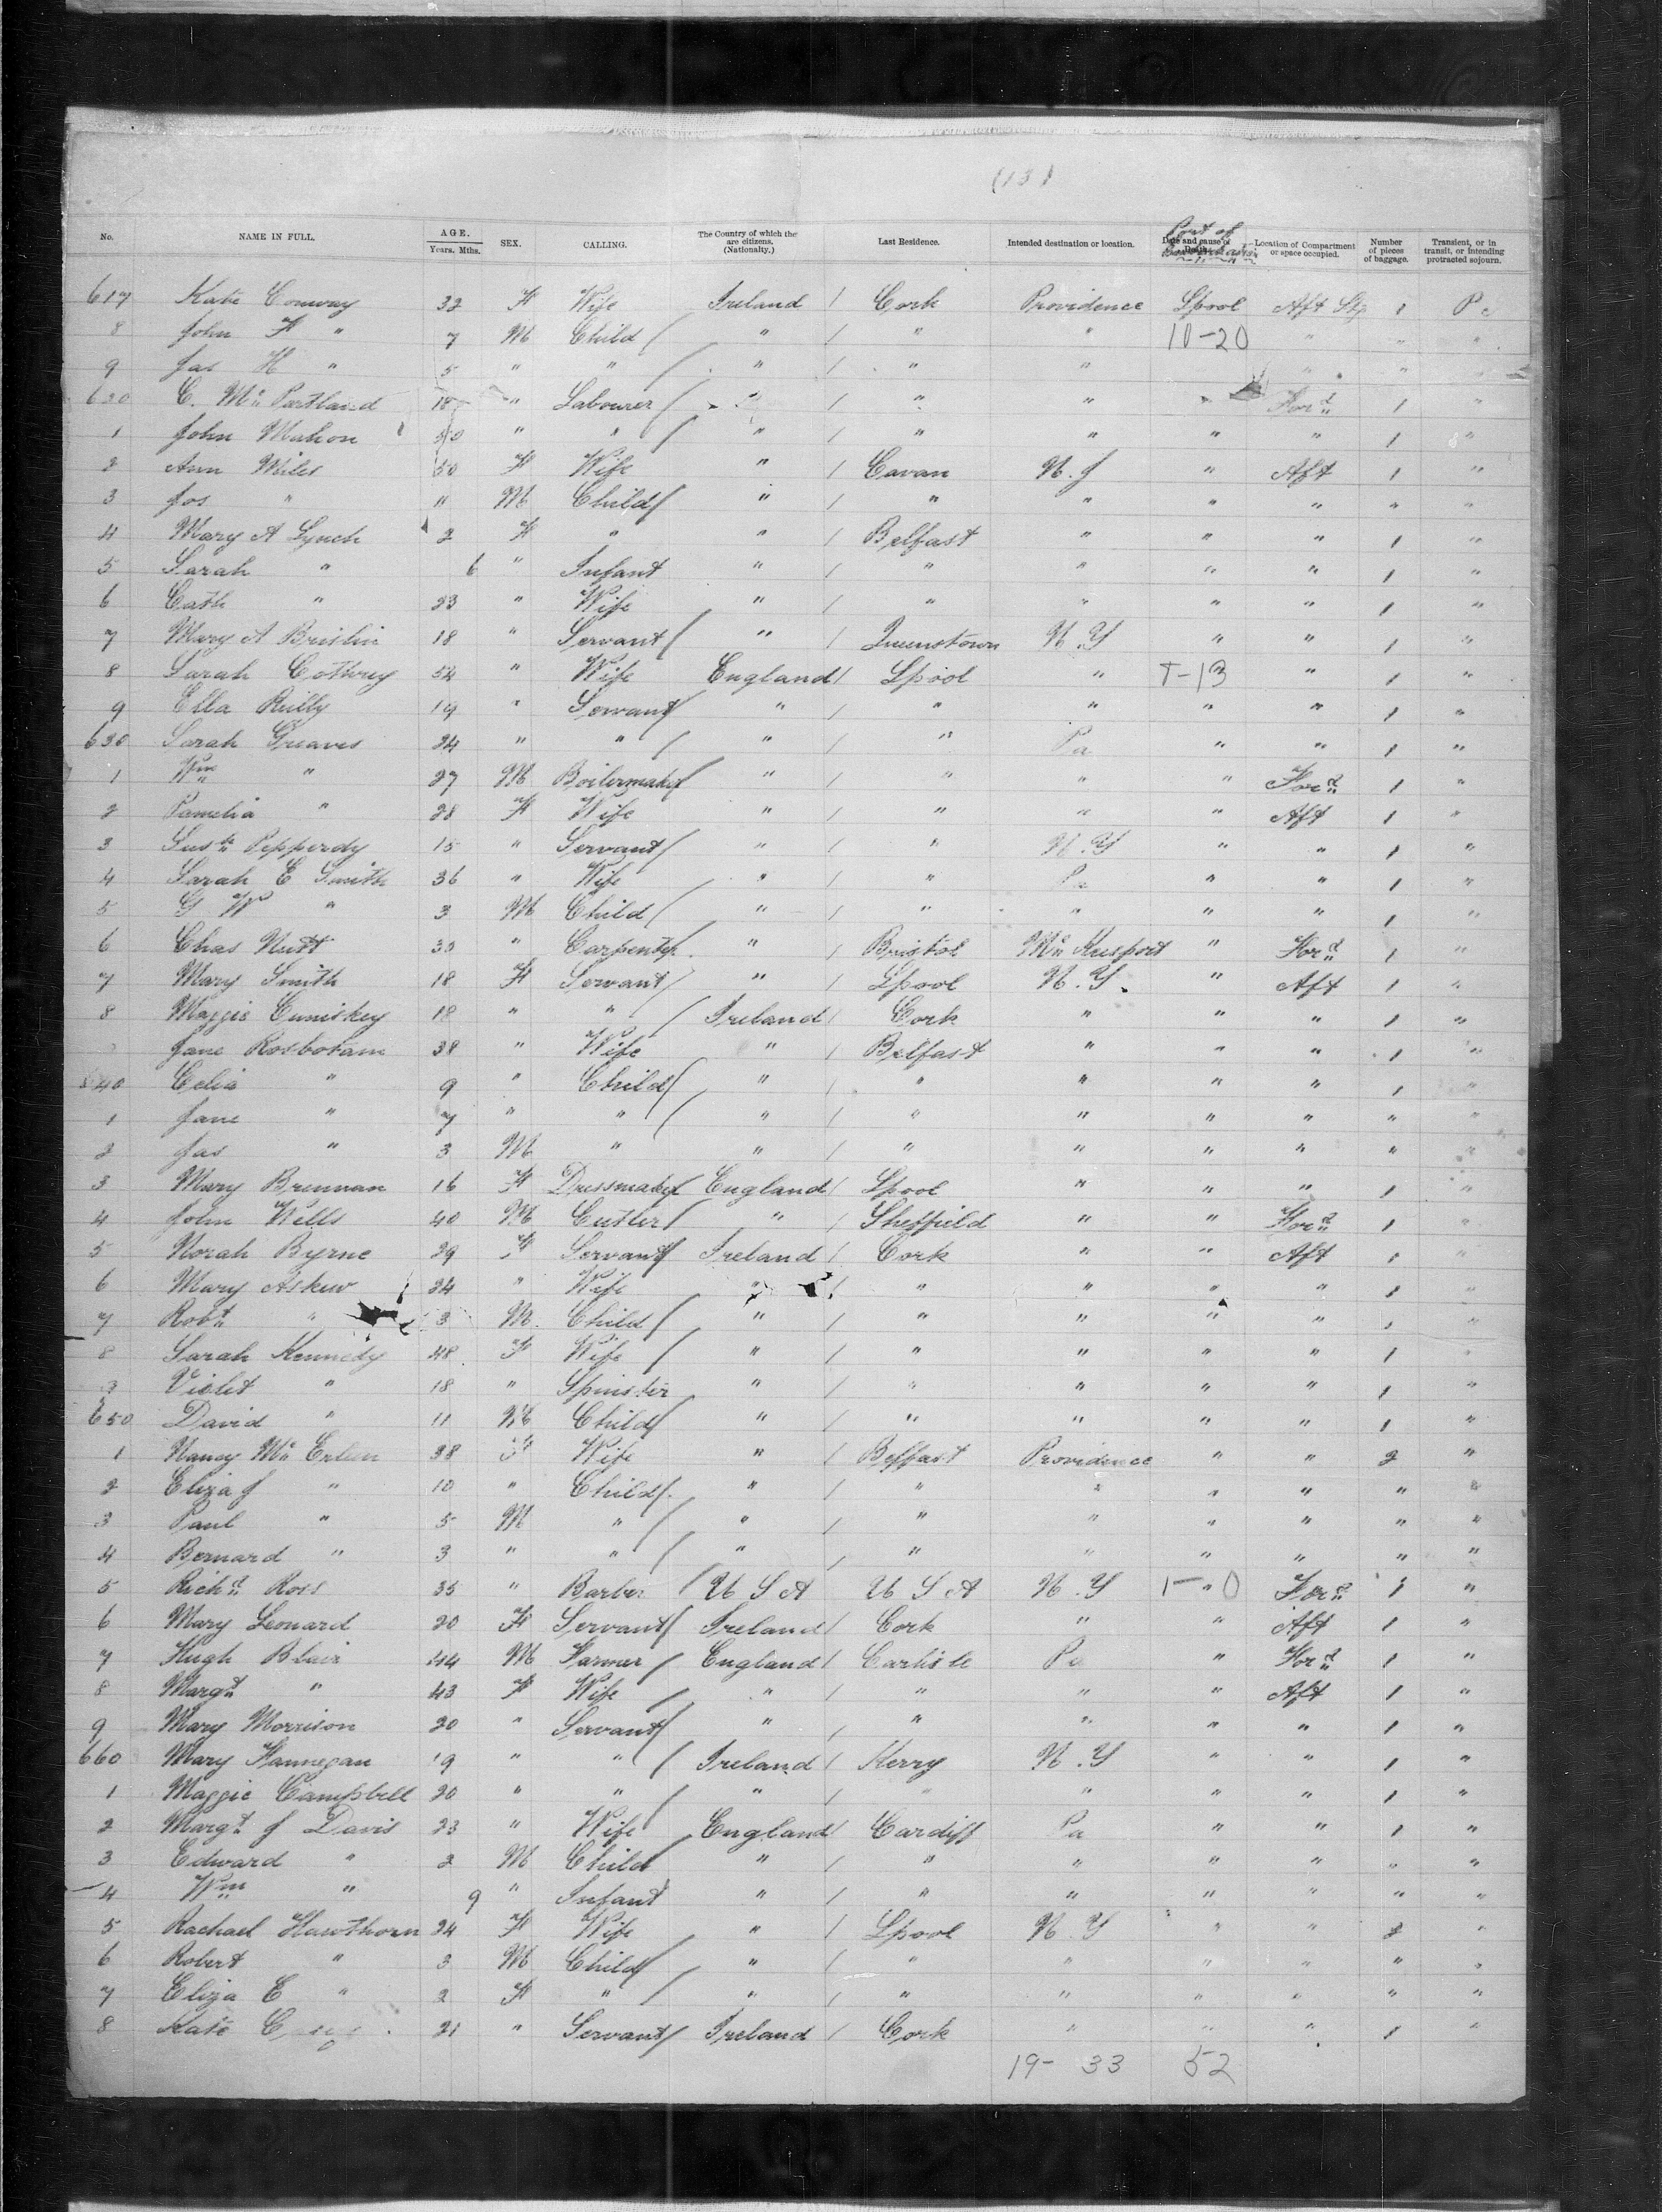 (13)
No. NAME IN FULL. AGE. Years. Mths. SEX. CALLING. The Country of which the are citizens. (Nationality.) Last Residence. Intended destination or location. Date and cause of Death. Port of Embarkation Location of Compartment or space occupied. Number of pieces of baggage. Transient, or in transit, or intending protracted sojourn.
617 Kate Conway 32 F Wife Ireland / Cork Providence Lpool Aft Stg 1
8 John F " 7 M Child / " / " " 10-20 " " "
9 Jas H " 5 " " / " / " " " " "
620 C. Mc Partland 18 " Labourer / " / " " " Ford 1 "
1 John Mahon " " / " / " " " " 1 "
2 Ann Miles 50 F Wife " / Cavan N. J " Aft 1 "
3 Jos " 11 M Child / " / " " " " " "
4 Mary A Lynch 2 F " " / Belfast " " " 1 "
5 Sarah " 6 " Infant " / " " " " 1 "
6 Cath " 23 " Wife " / " " " " 1 "
7 Mary A Brislin 18 " Servant / " / Queenstown N. Y " " 1 "
8 Sarah 54 " Wife England / Lpool " T-13 " 1 "
9 Ella Reilly 19 " Servant / " / " " " " 1 "
630 Sarah Greaves 24 " " / " / " Pa " " 1 "
1 Wm " 27 M Boilermaker / " / " " " Ford 1 "
2 Pamelia " 28 F Wife " / " " " Aft 1 "
3 Pepperdy 15 " Servant / " / " N. Y " " 1 "
4 Sarah E Smith 36 " Wife " / " Pa " " 1 "
5 G W " 3 M Child / " / " " " " 1 "
6 Chas Nutt 33 " Carpenter " / Bristol Mc Keesport " Ford 1 "
7 Mary Smith 18 F Servant / " / Lpool N. Y. " Aft 1 "
8 Maggie Cuniskey 18 " " / Ireland / Cork " " " 1 "
Jane Rosbotam 38 " Wife " / Belfast " " " 1 "
640 Celia " 9 " Child / " / " " " " 1 "
1 Jane " 7 " " / " / " " " " " "
2 Jas " 3 M " " / " " " " " "
3 Mary Brennan 16 F Dressmaker / England / Lpool " " " 1 "
4 John Wells 40 M Cutler / " / Sheffield " " Ford 1 "
5 Norah Byrne 29 F Servant / Ireland / Cork " " Aft 1 "
6 Mary Askew 24 " Wife " / " " " " 1 "
7 Robt " 3 M. Child / " / " " " " 1 "
8 Sarah Kennedy 48 F Wife / " / " " " " 1 "
9 Violet " 18 " Spinster " / " " " " 1 "
650 David " 11 M Child / " / " " " " 1 "
1 Nancy Mc 38 F Wife " / Belfast Providence " " 2 "
2 Eliza J " 10 " Child / " / " " " " " "
3 Paul " 5 M " / " / " " " " " "
4 Bernard " 3 " " / " / " " " " " "
5 Richd Ross 35 " Barber / U S A U S A N. Y 1-"0 Ford 1 "
6 Mary Leonard 20 F Servant / Ireland / Cork " " Aft 1 "
7 Hugh Blair 44 M Farmer / England / Carlisle Pa " Ford 1 "
8 Margt " 43 F Wife / " / " " " Aft 1 "
9 Mary Morrison 20 " Servant / " / " " " " 1 "
660 Mary Fannegan 19 " " / Ireland / Kerry N. Y " " 1 "
1 Maggie Campbell 20 " " / " / " " " " 1 "
2 Margt J Davis 23 " Wife England / Cardiff Pa " " 1 "
3 Edward " 2 M Child " / " " " " " "
4 Wm " 9 " Infant " / " " " " " "
5 Rachael Hawthorn 24 F Wife " / Lpool N. Y " " 2 "
6 Robert " 3 M Child / " / " " " " " "
7 Eliza E " 2 F " / " / " " " " " "
8 Kate 21 " Servant / Ireland / Cork " " " 1 "
19- 33 52